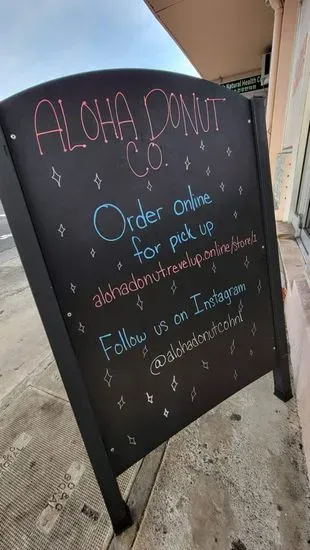 ALOHA DONUT
CO.
Order online
for pick up
alohadonut.revelup.online/store/1
Follow us on Instagram
@alohadonutcohnl
Natural Health C